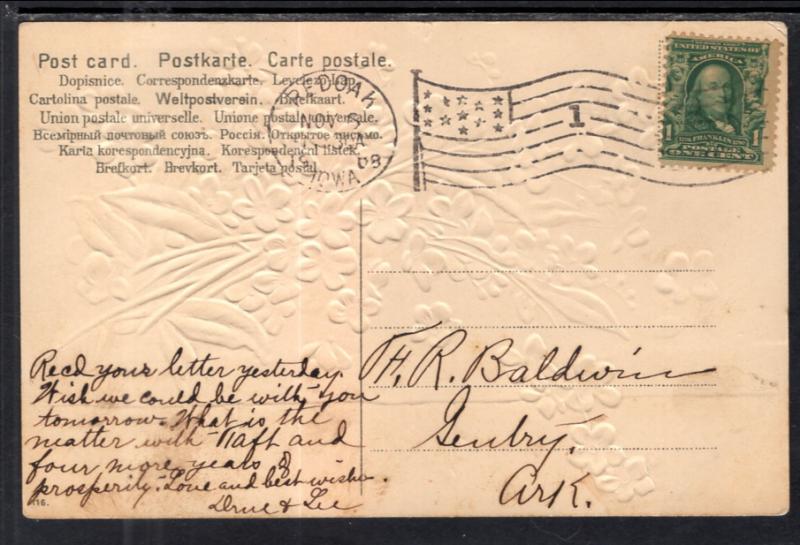 Post card. Postkarte. Carte postale.
Dopisnice. Correspondenzkarte. Levelező-Lap.
Cartolina postale. Weltpostverein. Brefkaart.
Union postale universelle. Unione postale universale.
Всемірный почтовый союзъ. Россія. Открытое письмо.
Karta korespondencyjna. Korespondenční lístek.
Brefkort. Brevkort. Tarjeta postal.
RED OAK
NOV
IOWA
08
1
UNITED STATES OF
AMERICA
1 FRANKLIN 1
POSTAGE
ONE CENT
Recd your letter yesterday.
Wish we could be with you
tomorrow. What is the
matter with Taft and
four more years of
prosperity. Love and best wishes.
& Lee
H. R. Baldwin
Gentry,
Ark.
116.